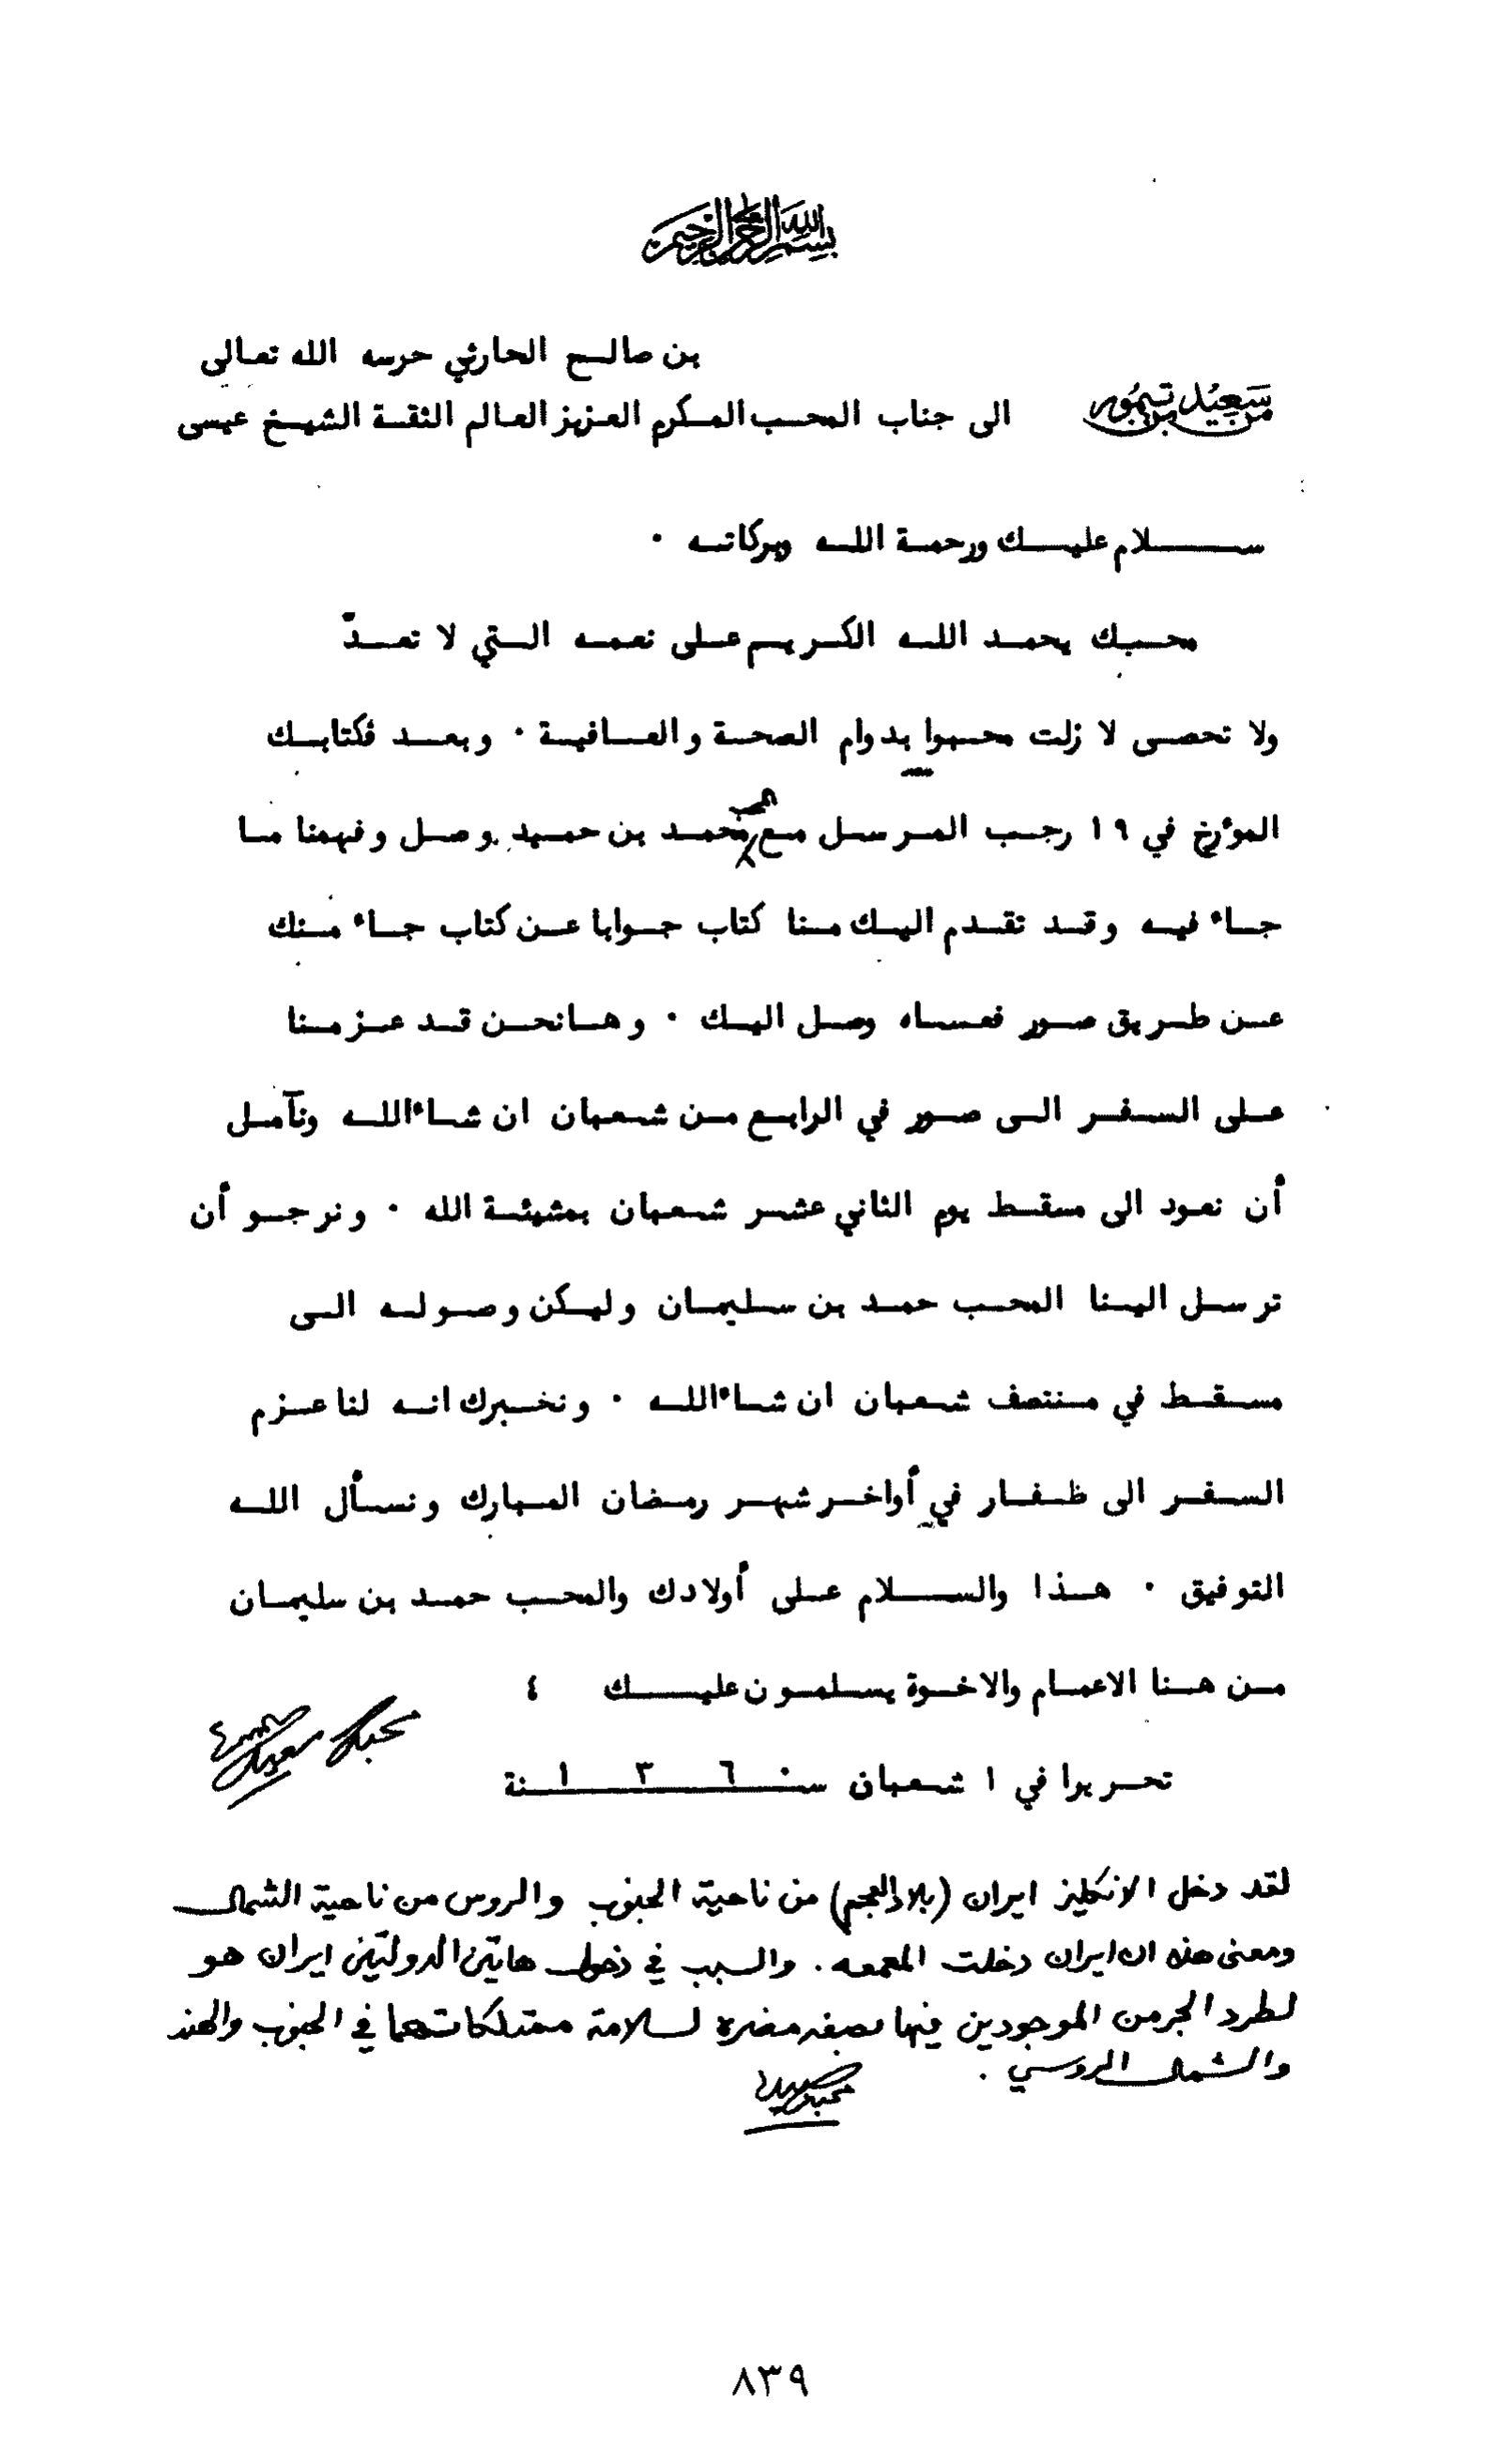 بسم الله الرحمن الرحيم
بن صالح الحارثي حرسه الله تعالى
من سعيد بن تيمور الى جناب المحب المكرم العزيز العالم الثقة الشيخ عيسى
سلام عليك ورحمة الله وبركاته ٠
محبك يحمد الله الكريم على نعمه التي لا تعدّ
ولا تحصى لا زلت محبوا بدوام الصحة والعافية ٠ وبعد فكتابك
المؤرخ في ١٩ رجب المرسل مع المحب محمد بن حميد وصل وفهمنا ما
جاء فيه وقد تقدم اليك منا كتاب جوابا عن كتاب جاء منك
عن طريق صور فعساه وصل اليك ٠ وهانحن قد عزمنا
على السفر الى صور في الرابع من شعبان ان شاءالله ونآمل
أن نعود الى مسقط يوم الثاني عشر شعبان بمشيئة الله ٠ ونرجو أن
ترسل الينا المحب حمد بن سليمان وليكن وصوله الى
مسقط في منتصف شعبان ان شاءالله ٠ ونخبرك انه لنا عزم
السفر الى ظفار في أواخر شهر رمضان المبارك ونسأل الله
التوفيق ٠ هذا والسلام على أولادك والمحب حمد بن سليمان
من هنا الاعمام والاخوة يسلمون عليك ٤
محبك سعيد
تحريرا في ١ شعبان سنة ١٣٦٠
لقد دخل الانكليز ايران (بلاد العجم) من ناحية الجنوب والروس من ناحية الشمال
ومعنى هذه ان ايران دخلت المعمعه. والسبب في دخول هاتين الدولتين ايران هو
لطرد الجرمن الموجودين فيها بصفه مضره لسلامة ممتلكاتهما في الجنوب والهند
والشمال الروسي .
٨٣٩